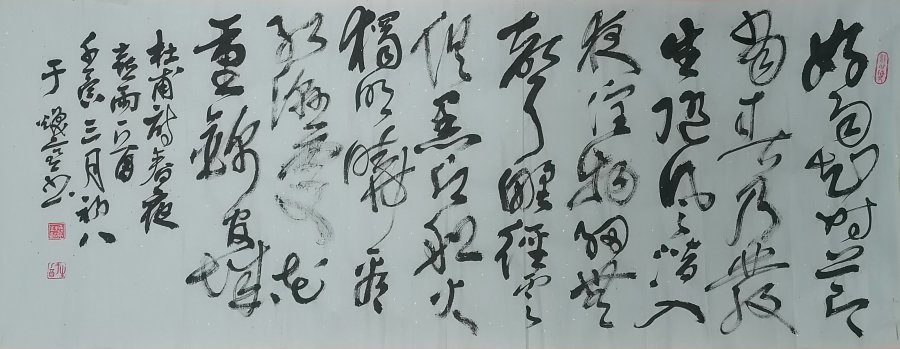 好雨知时节
当春乃發
生随风潜入
夜润物细無
声野径雲
俱黑江船火
獨明曉看
红湿處花
重錦官城
杜甫诗春夜
喜雨一首
壬寅三月初八
于